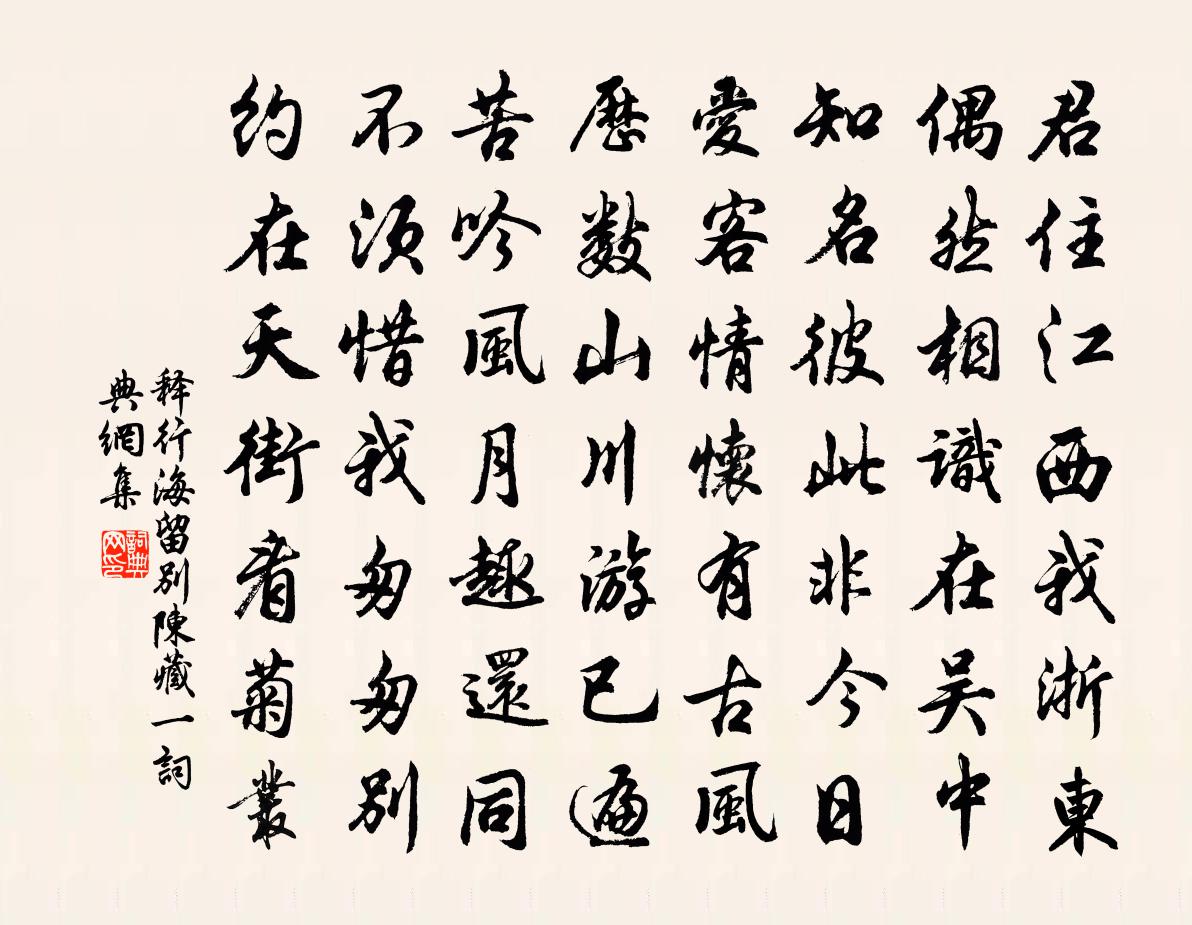 君住江西我浙東
偶然相識在吴中
知名彼此非今日
愛客情懷有古風
歷數山川游已遍
苦吟風月趣還同
不須惜我匆匆別
約在天街看菊叢
释行海留别陳藏一詞
典網集
詞典
网印